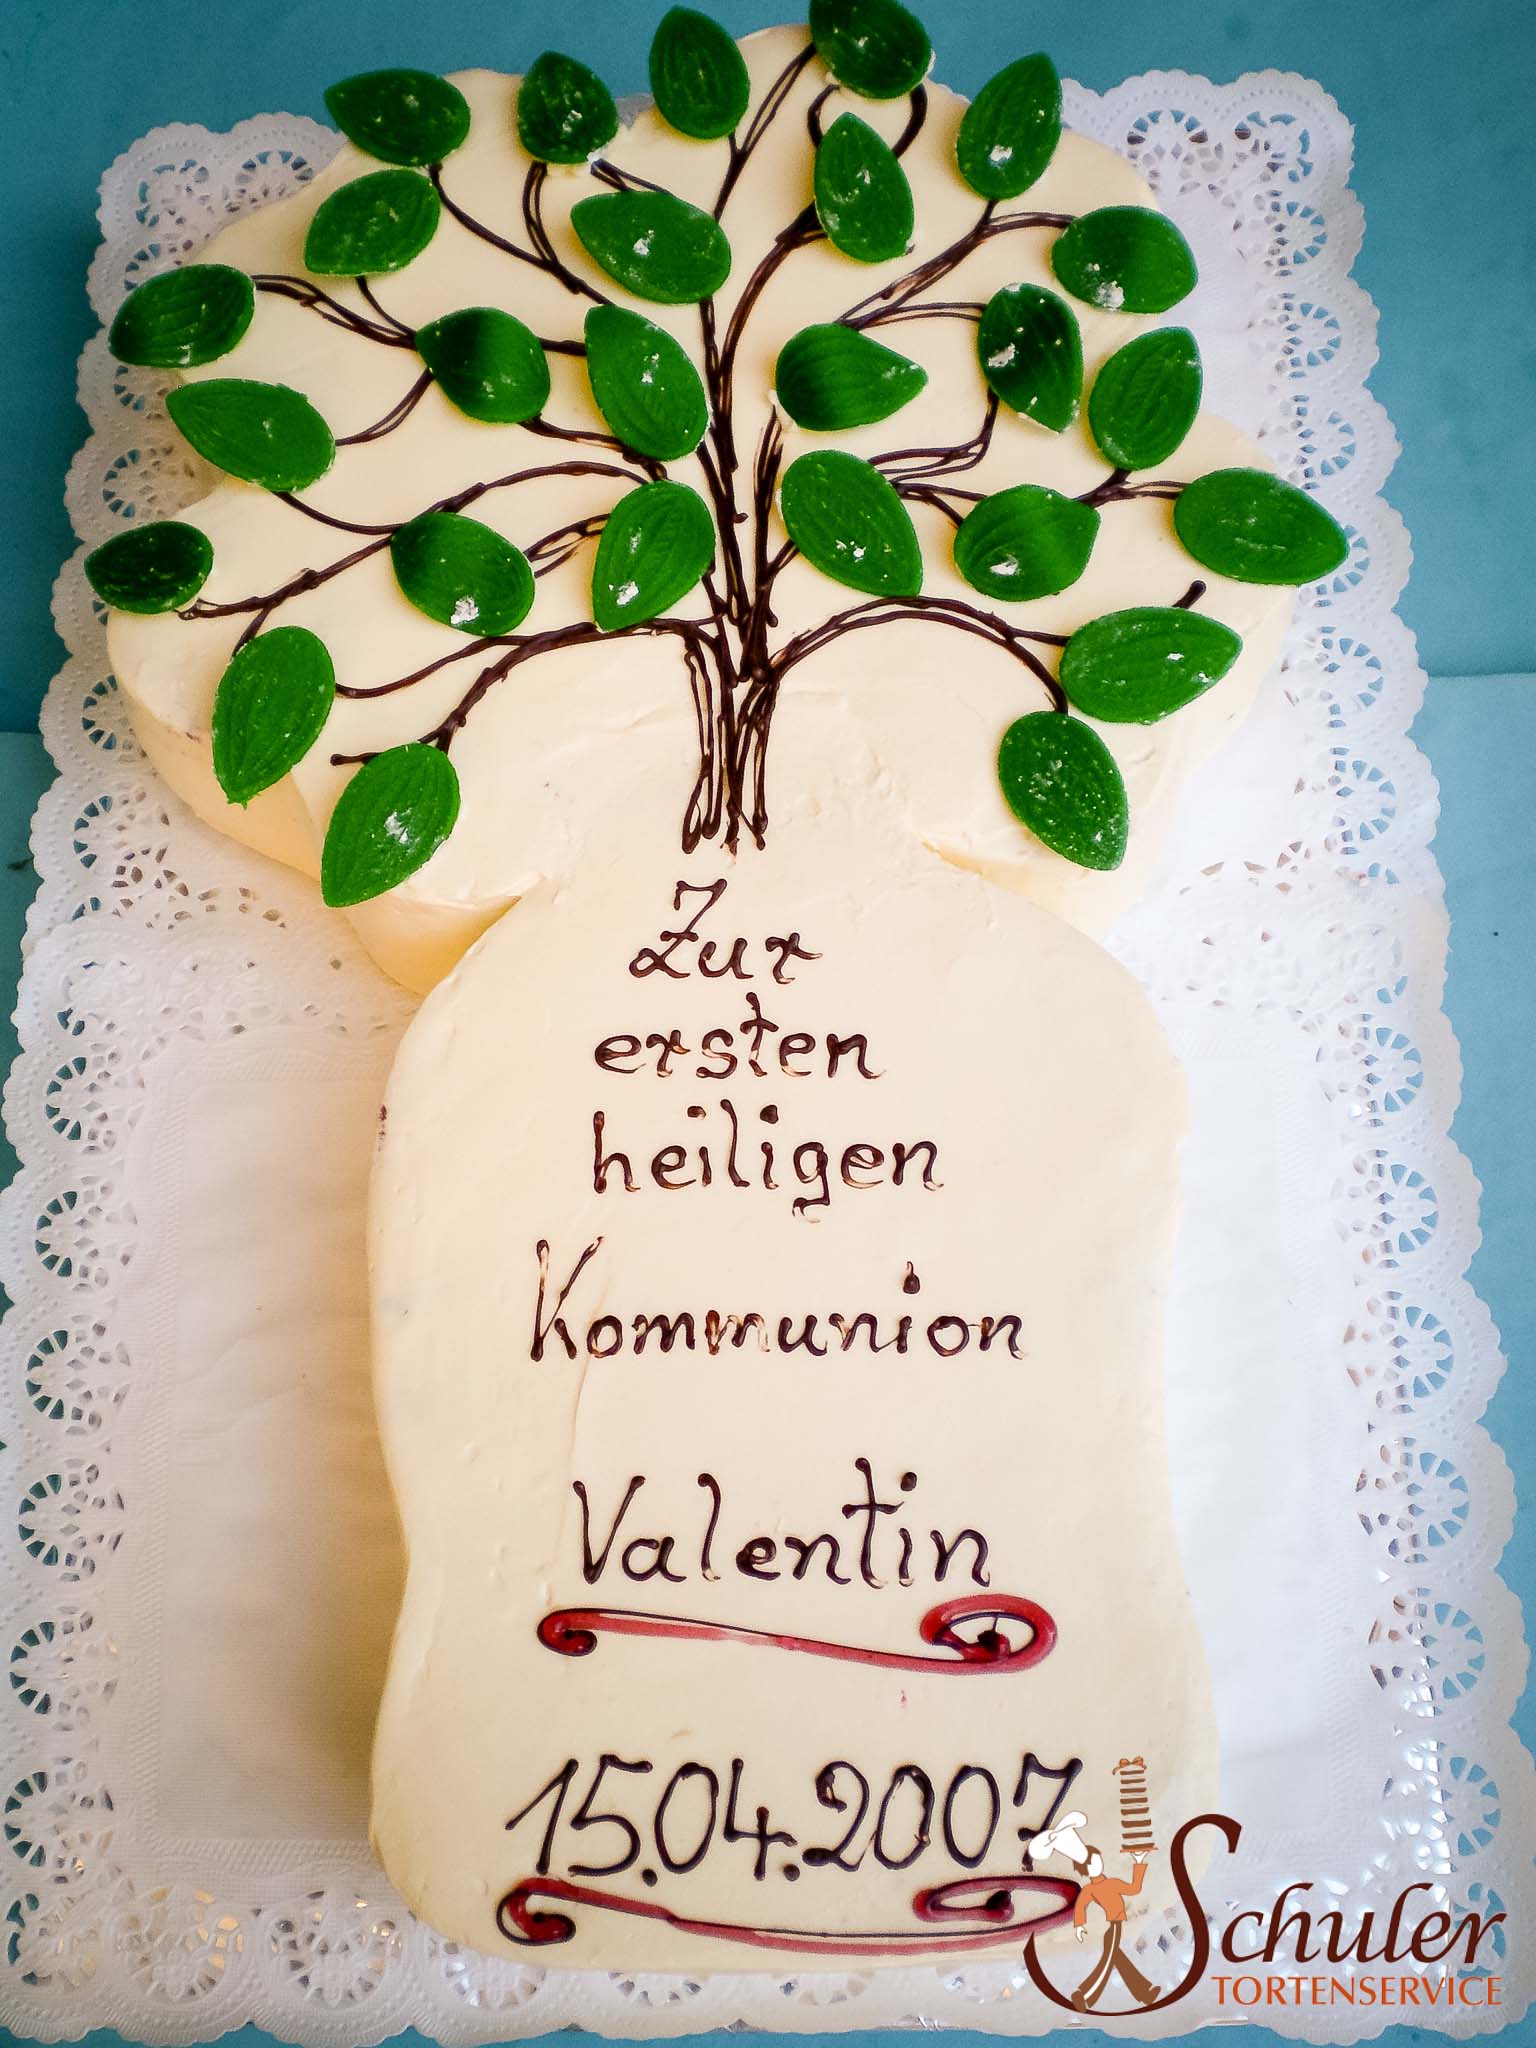 Zur
ersten
heiligen
Kommunion
Valentin
15.04.2007
Schuler
TORTENSERVICE